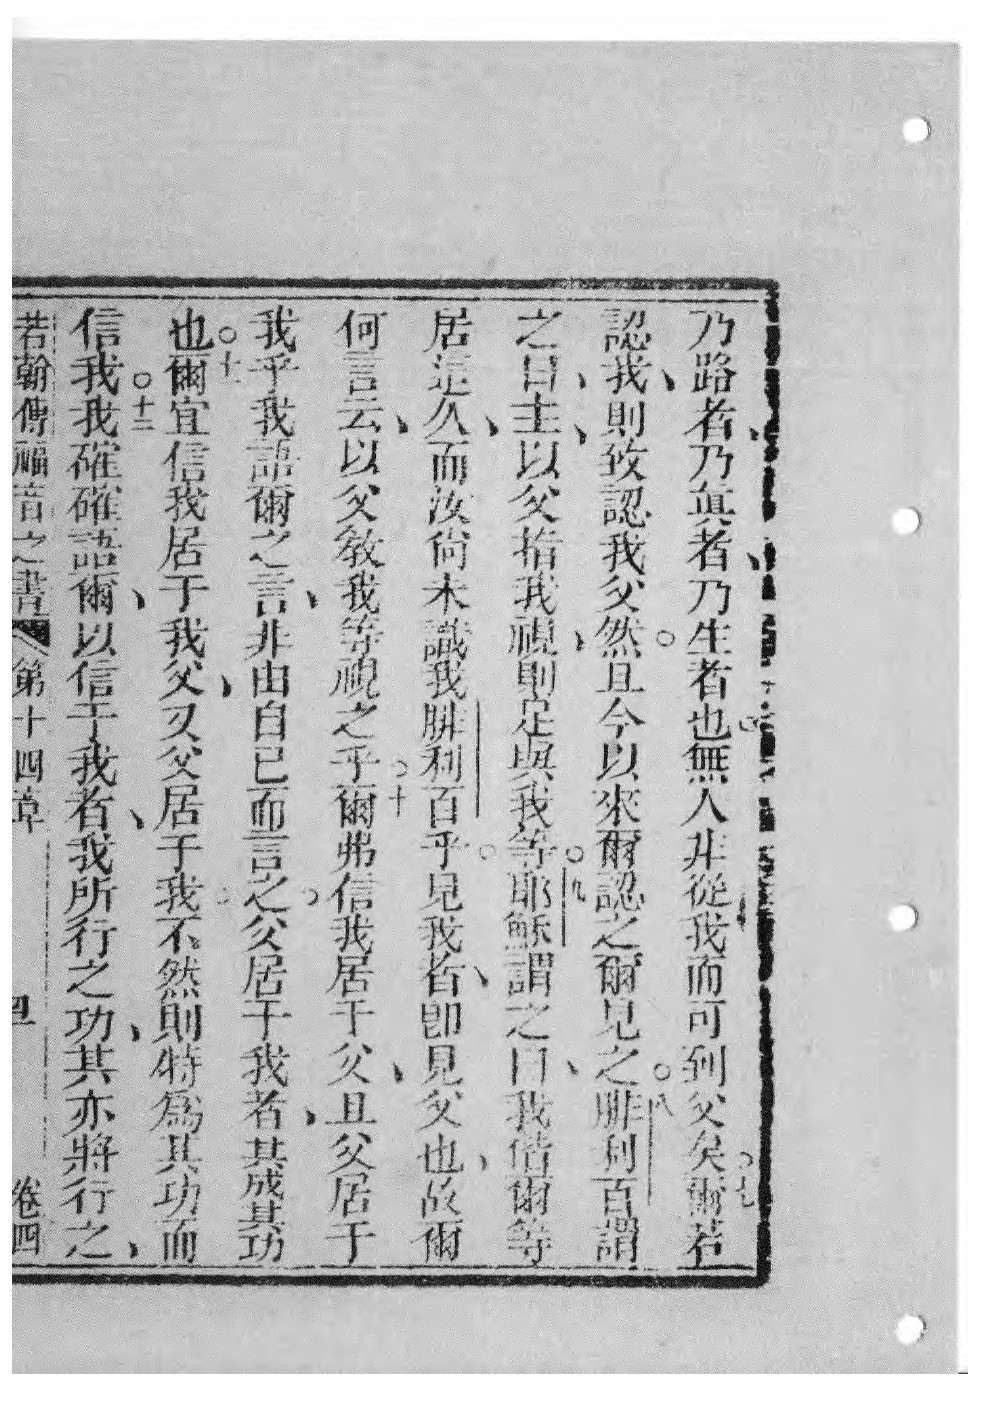 乃路者、乃眞者、乃生者也○無人非從我而可到父矣○七爾若
認我、則致認我父然○且今以來爾認之爾見之○八腓利百謂
之曰、主、以父指我視、則足與我等○九耶穌謂之曰、我偕爾等
居這久、而汝尙未識我腓利百乎○見我者、卽見父也、故爾
何言云、以父教我等視之乎○十爾弗信我居于父、且父居于
我乎我語爾之言、非由自已而言之○父居于我者、其成其功
也○十一爾宜信我居于我父、又父居于我○不然則特爲其功而
信我○十二我確確語爾、以信于我者、我所行之功、其亦將行之、
若翰傳福音之書 第十四章 四 卷四